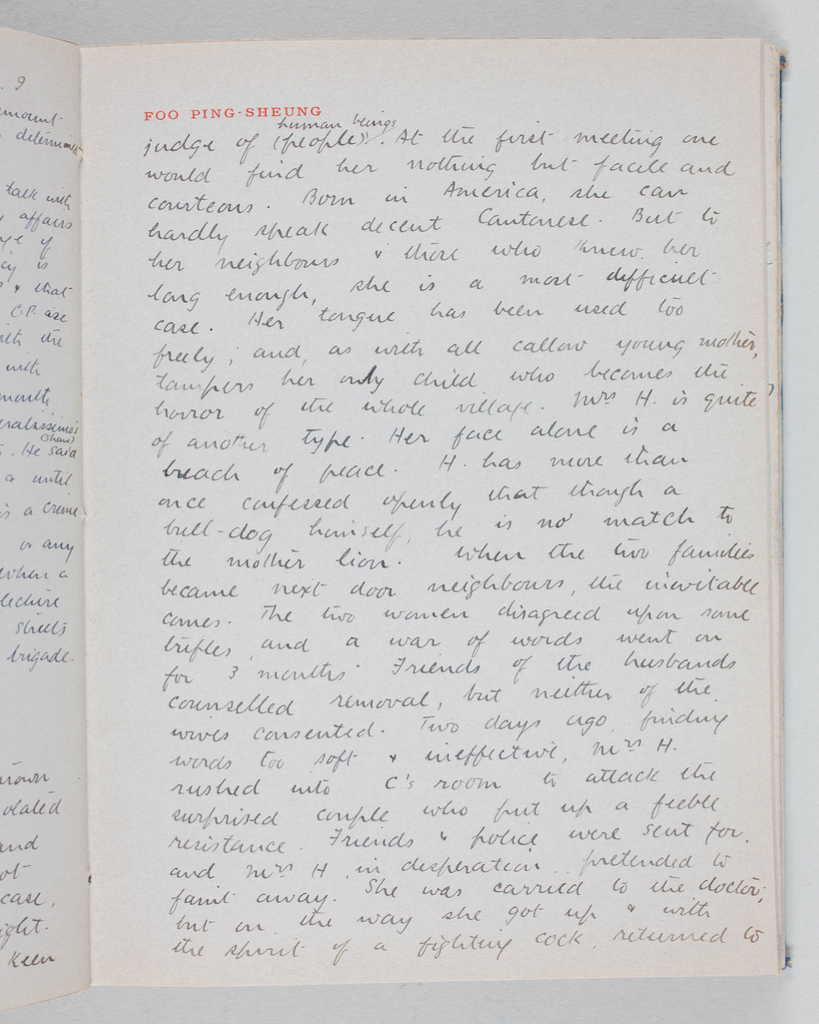 . 9
mount
determined
talk with
affairs
ge of
cy is
s & that
C.P. are
ith the
with
month,
eralissimo's
(Shaw)
. He said
a until
is a crime
or any
when a
lecture
streets
brigade.
nown
olated
and
ot
case,
ight.
Keen
FOO PING-SHEUNG
human beings
judge of (people)". At the first meeting one
would find her nothing but facile and
courteous. Born in America, she can
hardly speak decent Cantonese. But to
her neighbours & those who knew her
long enough, she is a most difficult
case. Her tongue has been used too
freely; and, as with all callow young mother,
tampers her only child who becomes the
horror of the whole village. Mrs H. is quite
of another type. Her face alone is a
breach of peace. H. has more than
once confessed openly that though a
bull-dog himself, he is no match to
the mother lion. When the two families
became next door neighbours, the inevitable
comes. The two women disagreed upon some
trifles and a war of words went on
for 3 months. Friends of the husbands
counselled removal, but neither of the
wives consented. Two days ago, finding
words too soft & ineffective, Mrs H.
rushed into C's room to attack the
surprised couple who put up a feeble
resistance. Friends & police were sent for,
and Mrs H, in desperation, pretended to
faint away. She was carried to the doctor,
but on the way she got up & with
the spirit of a fighting cock, returned to